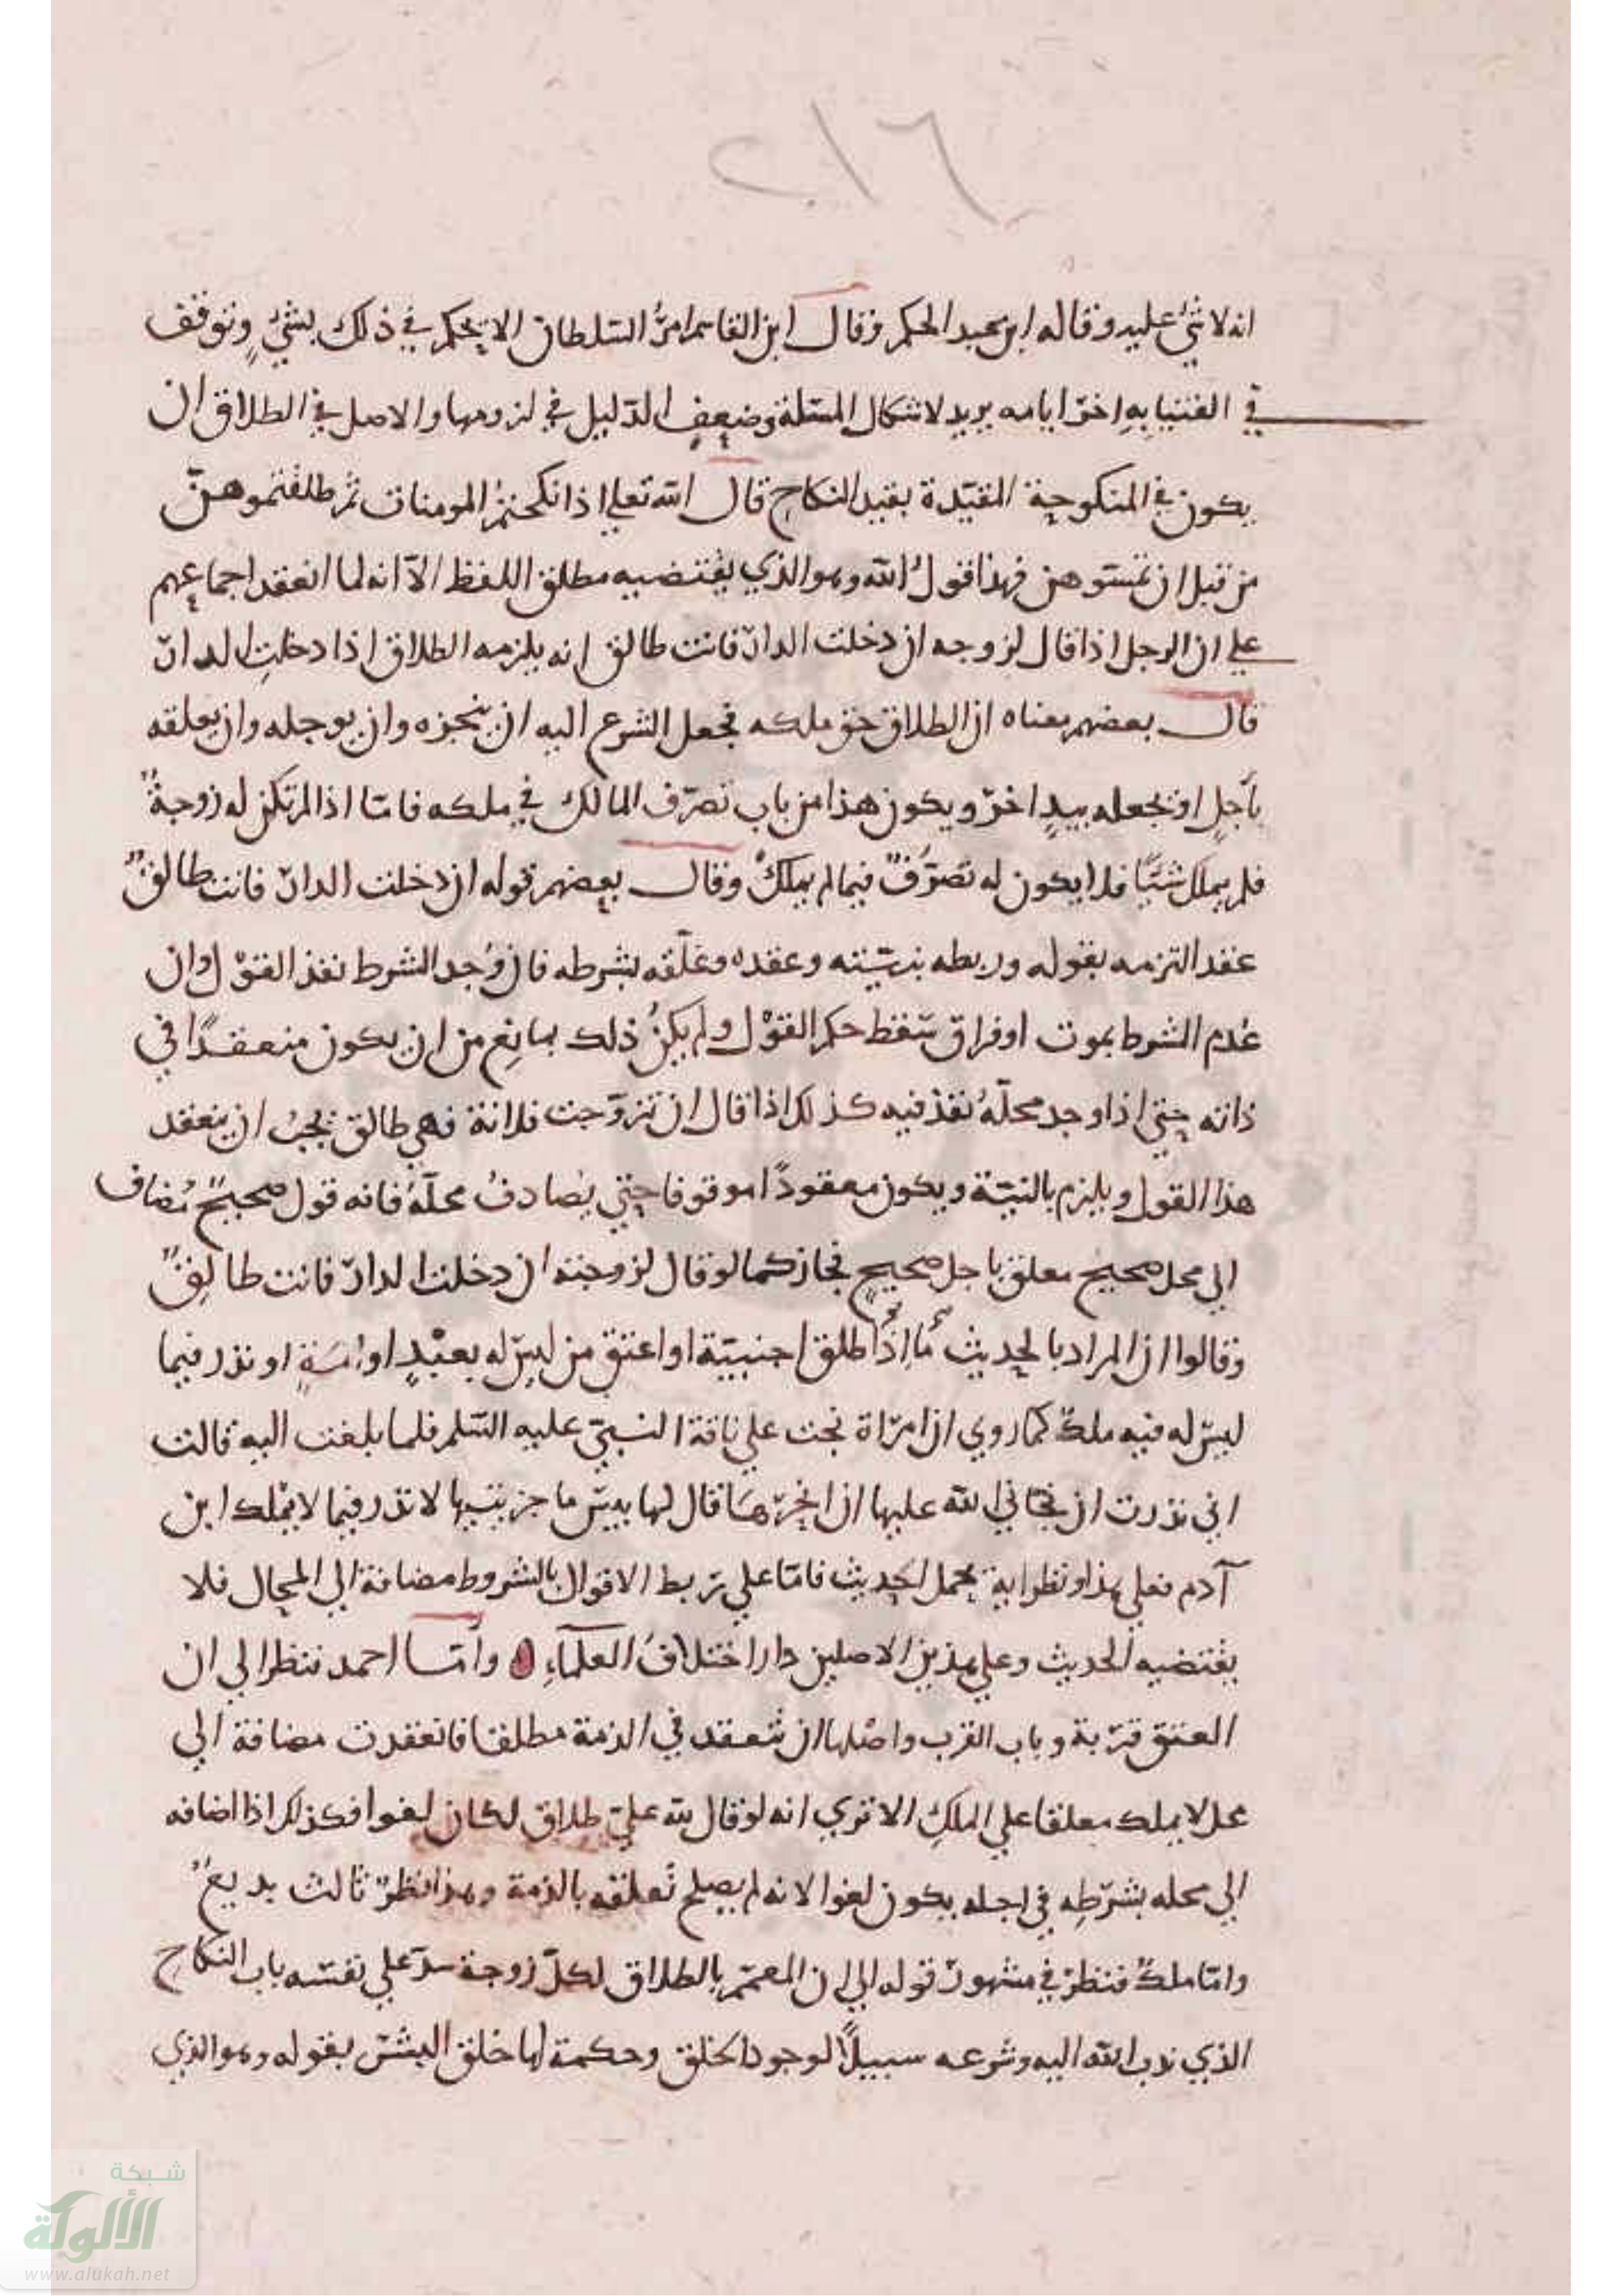 ٢١٦
انه لا شئ عليه وقاله ابن عبد الحكم وقال ابن القاسم امر السلطان الا يحكم في ذلك بشئٍ وتوقف
في الفتيا بهِ اخر ايامه يريد لاشكال المسئلة وضعفِ الدليل في لزومها والاصل في الطلاق ان
يكون في المنكوحة المقيدة بقيد النكاح قال الله تعلي اذا نكحتم المومنات ثم طلقتموهنّ
من قبل ان تمسوهن فهذا قولُ الله وهو الذي يقتضيه مطلق اللفظ الا انه لما انعقد اجماعهم
علي ان الرجل اذا قال لزوجه ان دخلت الدار فانت طالق انه يلزمه الطلاق اذا دخلتِ الدار
قال بعضهم معناه ان الطلاق حق ملكه فجعل الشرع اليه ان ينجزه وان يوجله وان يعلقه
بأجلٍ او يجعله بيدِ اخر ويكون هذا من باب تصرّف المالك في ملكه فامّا اذا لم تكن له زوجةٌ
فلم يملك شيًا فلا يكون له تصرّفٌ فيما لم يملكْ وقال بعضهم قوله ان دخلت الدار فانت طالقٌ
عقد التزمه بقوله وربطه بنيّته وعقده وعلّقه بشرطه فان وُجد الشرط نفذ القوْل وان
عُدم الشرط بموت او فراق سقط حكم القوْل ولم يكنْ ذلك بمانعٍ من ان يكون منعقدًا في
ذاته حتي اذا وجد محلّهُ نفذ فيه كذلك اذا قال ان تزوّجت فلانة فهي طالق يجبُ ان ينعقد
هذا القول ويلزم بالنيّة ويكون معقودًا موقوفا حتي يُصادفُ محلّهُ فانه قول صحيحٌ مُضاف
الي محل صحيح معلق باجل صحيحٍ فجاز كما لو قال لزوجته ان دخلت الدار فانت طالِقٌ
وقالوا ان المراد بالحديث مااذا طلق اجنبيّة او اعتق من ليس له بعبْدٍ او امَةٍ او نذر فيما
ليس له فيه ملكٌ كما روي ان امراة نجت علي ناقة النبيّ عليه السّلم فلما بلغت اليه قالت
اني نذرت ان نجّاني الله عليها ان انحرها قال لها بيس ما جزيتيها لا نذر فيما لا يمْلك ابن
آدم فعلي هذا ونظرايه يحمل الحديث فامّا علي ربط الاقوال بالشروط مضافة الي المحال فلا
يقتضيه الحديث وعلي هذين الاصلين دار اختلافُ العلماءِ ٥ وأمّا احمد فنظر الي ان
العتق قرْبة وباب القرب واصْلها ان تُعقد في الذمة مطلقا فانعقدت مضافة الي
محل لا يملك معلقا علي الملكِ الا تري انه لو قال لله عليّ طلاق لكان لغوا فكذلك اذا اضافه
الي محله بشرْطِه في اجله يكون لغوا لانه لم يصلح تُعلقه بالذمة وهذا نظرٌ ثالث بديعٌ
وامّا ملكٌ فنظرْ في مشهور قوله الي ان المعمّم بالطلاق لكلّ زوجة سدّ علي نفسه باب النكاح
الذي ندب الله اليه وشرعه سبيلًا لوجود الخلق وحكمة لها خلق البشر بقوله وهو الذي
شبكة
الألوكة
www.alukah.net